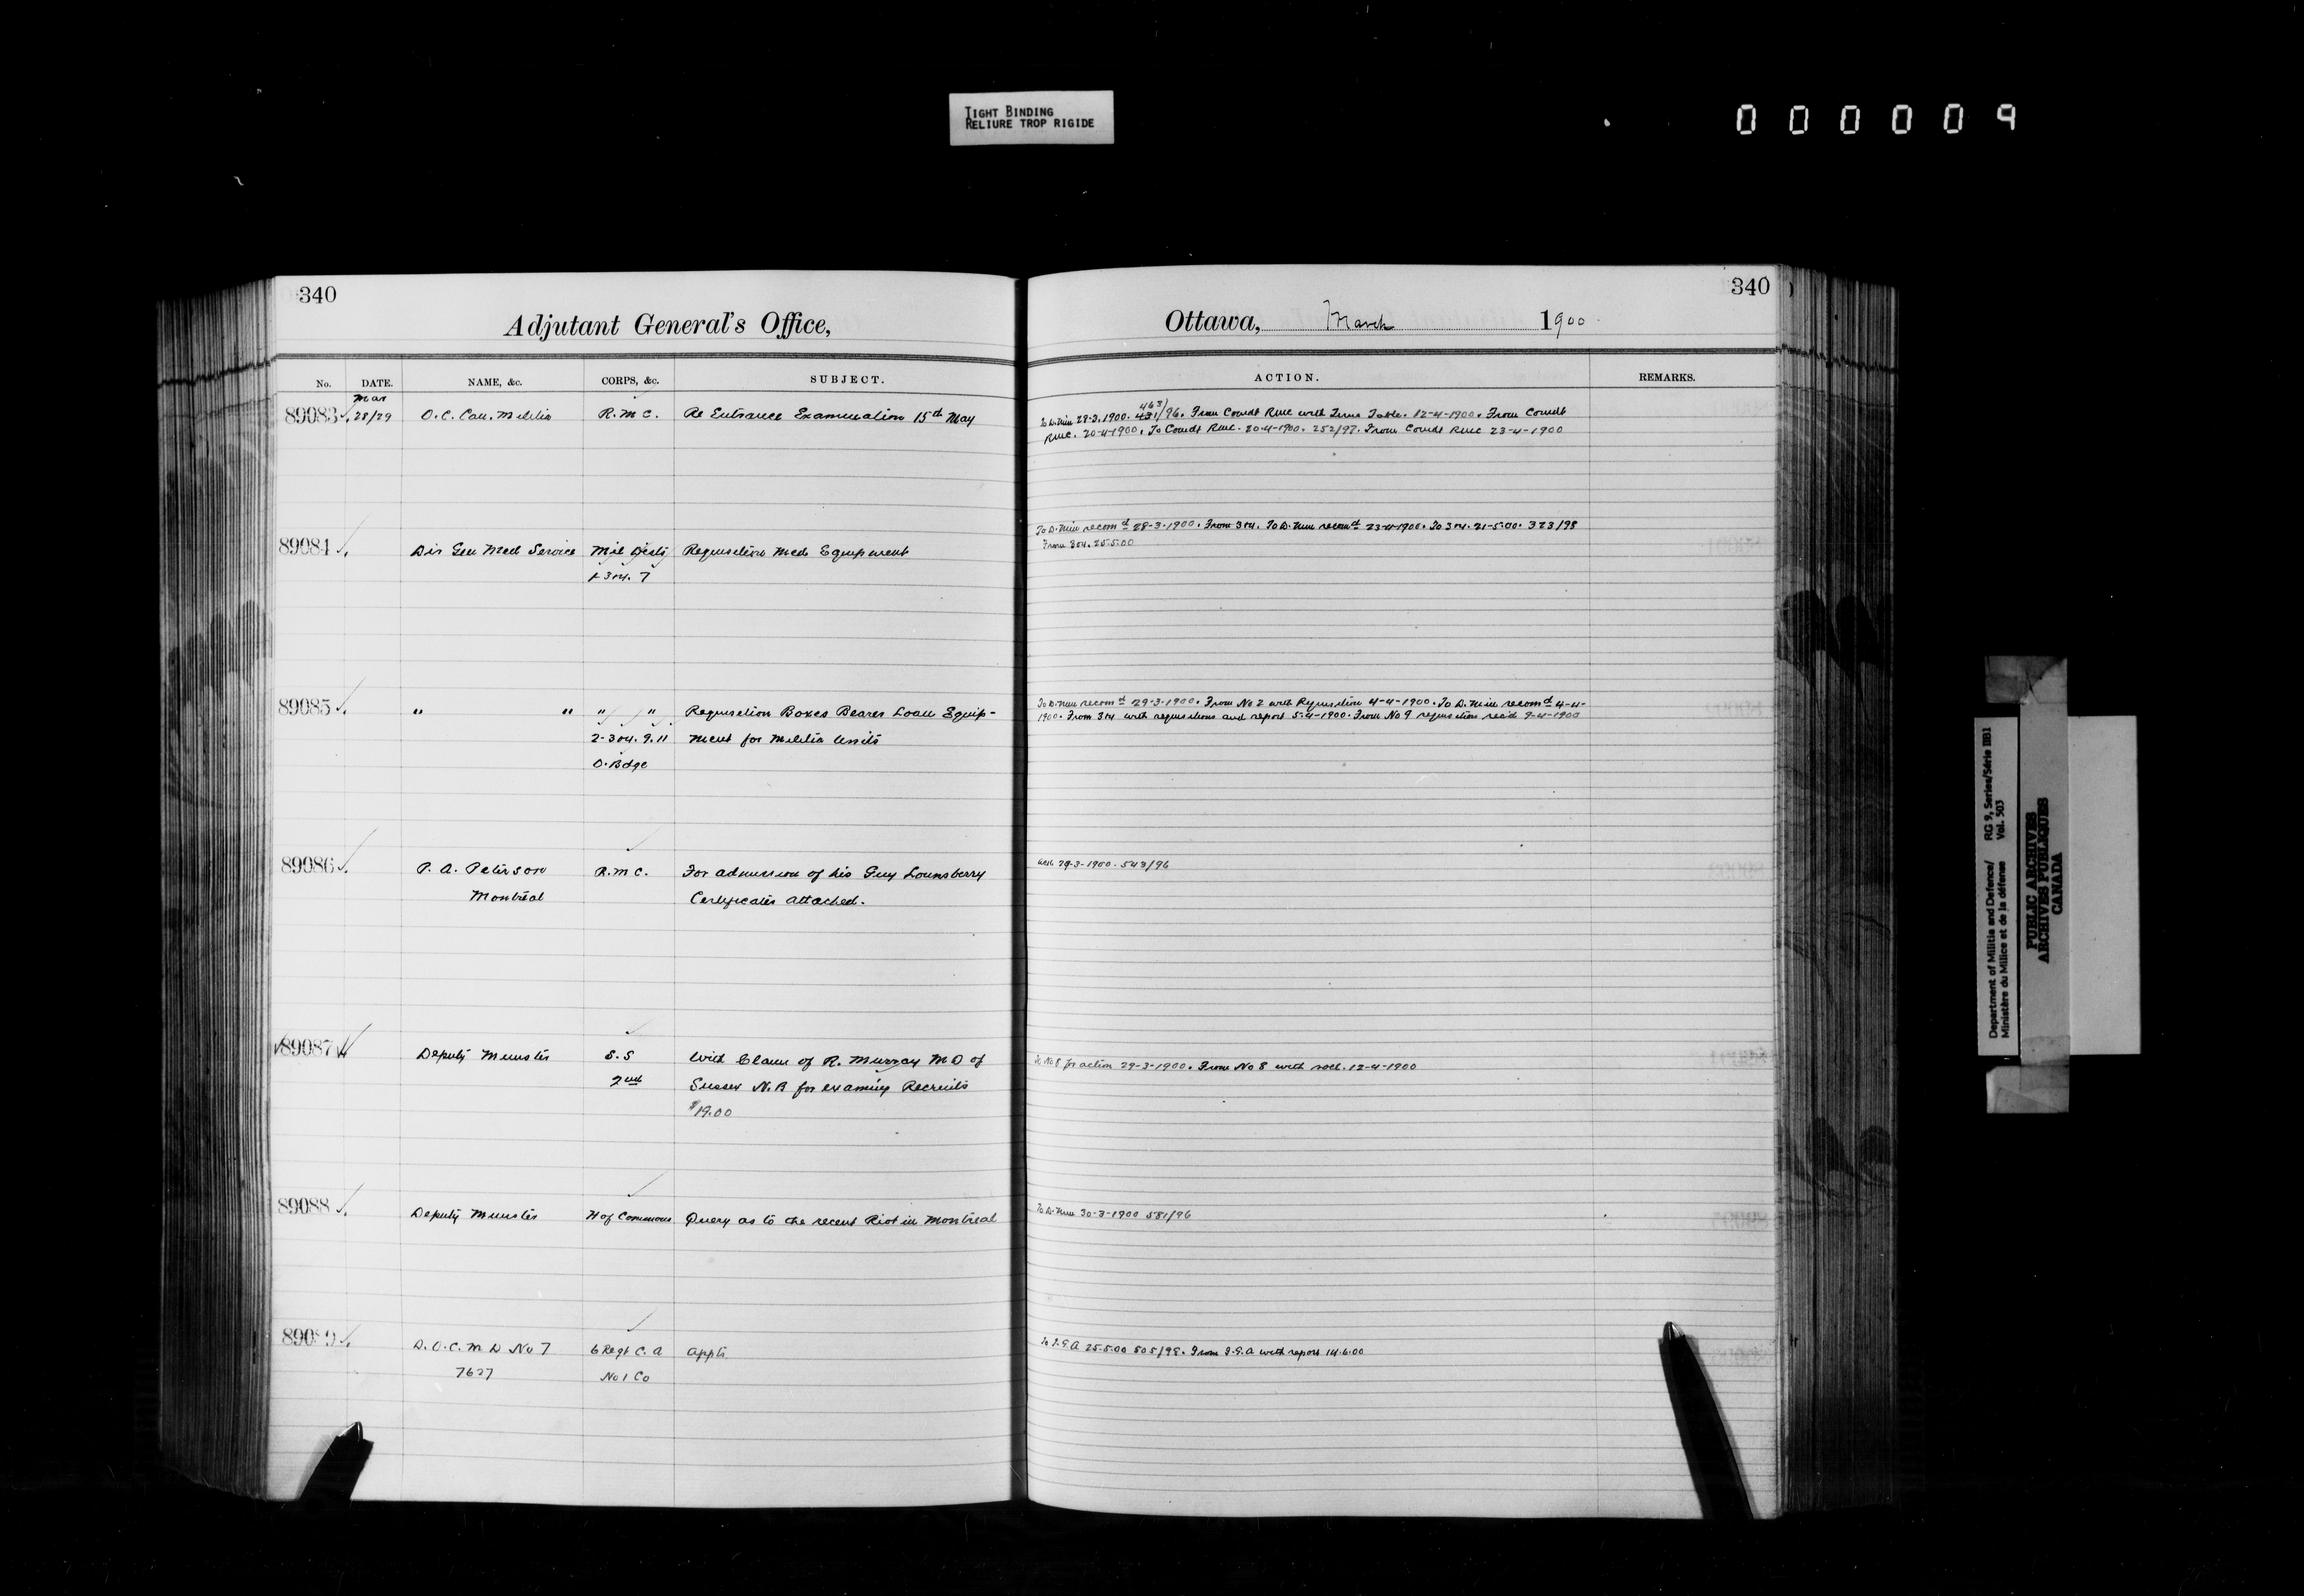 TIGHT BINDING
RELIURE TROP RIGIDE
000009
340
Adjutant General's Office,
No. DATE. NAME, &c. CORPS, &c. SUBJECT.
Mar
89083 28/29 O.C. Can. Militia R.M.C. Re Entrance Examination 15th May
89084 Dir Gen Med Service Mil Dists Requisition Med Equipment
1 3 & 4. 7
89085 " " " " Requisition Boxes Bearer Loan Equip-
2-3 & 4. 9. 11 ment for Militia Units
O. Bdge
89086 P. A. Peterson R.M.C. For admission of his Guy Lounsberry
Montreal Certificates attached.
89087 Deputy Minister S.S With Claim of R. Murray M D of
2nd Sussex N.B for examing Recruits
$19.00
89088 Deputy Minister H of Commons Query as to the recent Riot in Montreal
89089 D.O.C. M D No 7 6 Regt C. A Appts
7627 No 1 Co
340
Ottawa, March 1900
ACTION. REMARKS.
463/
To D. Min 29-3-1900. 431/96. From Comdt RMC with Time Table. 12-4-1900. From Comdt
RMC. 20-4-1900. To Comdt RMC. 20-4-1900. 252/97. From Comdt RMC 23-4-1900
To D. Min recomd 28-3-1900. From 3 & 4. To D. Min recomd 23-4-1900. To 3 & 4. 21-5-00. 323/98
From 3 & 4. 25.5.00
To D. Min recomd 29-3-1900. From No 2 with Requisition 4-4-1900. To D. Min recomd 4-4-
1900. From 3 & 4 with requisitions and report 5-4-1900. From No 9 requisition recd 9-4-1900
29-3-1900. 543/96
To No 8 for action 29-3-1900. From No 8 with 12-4-1900
To D. Min 30-3-1900 581/96
To I.G.A 25.5.00 505/98. From I.G.A with report 14.6.00
Department of Militia and Defence/ RG 9, Series/Série IIB1
Ministère du Milice et de la défense Vol. 503
PUBLIC ARCHIVES
ARCHIVES PUBLIQUES
CANADA